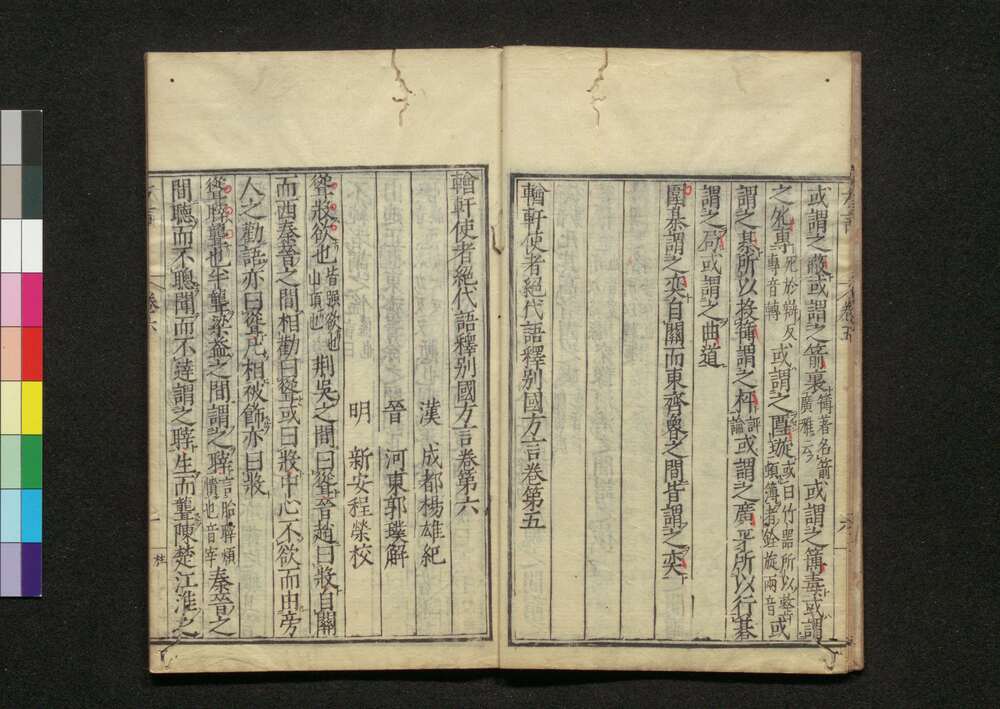 或謂之蔽或謂之箭裏簿著名箭廣雅云或謂之簿毒或謂
之夗專夗於辯反專音轉或謂之㔷璇或曰竹器所以整頓簿者銓旋兩音或
謂之棊所以投簿謂之枰評論或謂之廣平所以行棊
謂之局或謂之曲道
圍棊謂之奕自關而東齊魯之間皆謂之奕
輶軒使者絕代語釋別國方言卷第五
輶軒使者絕代語釋別國方言卷第六
漢 成都楊雄紀
晉 河東郭璞解
明 新安程榮校
聳㢡欲也皆強欲也山頂也荆吳之間曰聳晉趙曰㢡自關
而西秦晉之間相勸曰聳或曰㢡中心不欲而由旁
人之勸語亦曰聳凡相被飾亦曰㢡
聳䏁聾也半聾梁益之間謂之䏁言胎䏁煩憒也音宰秦晉之
間聽而不聰聞而不達謂之䏁生而聾陳楚江淮之